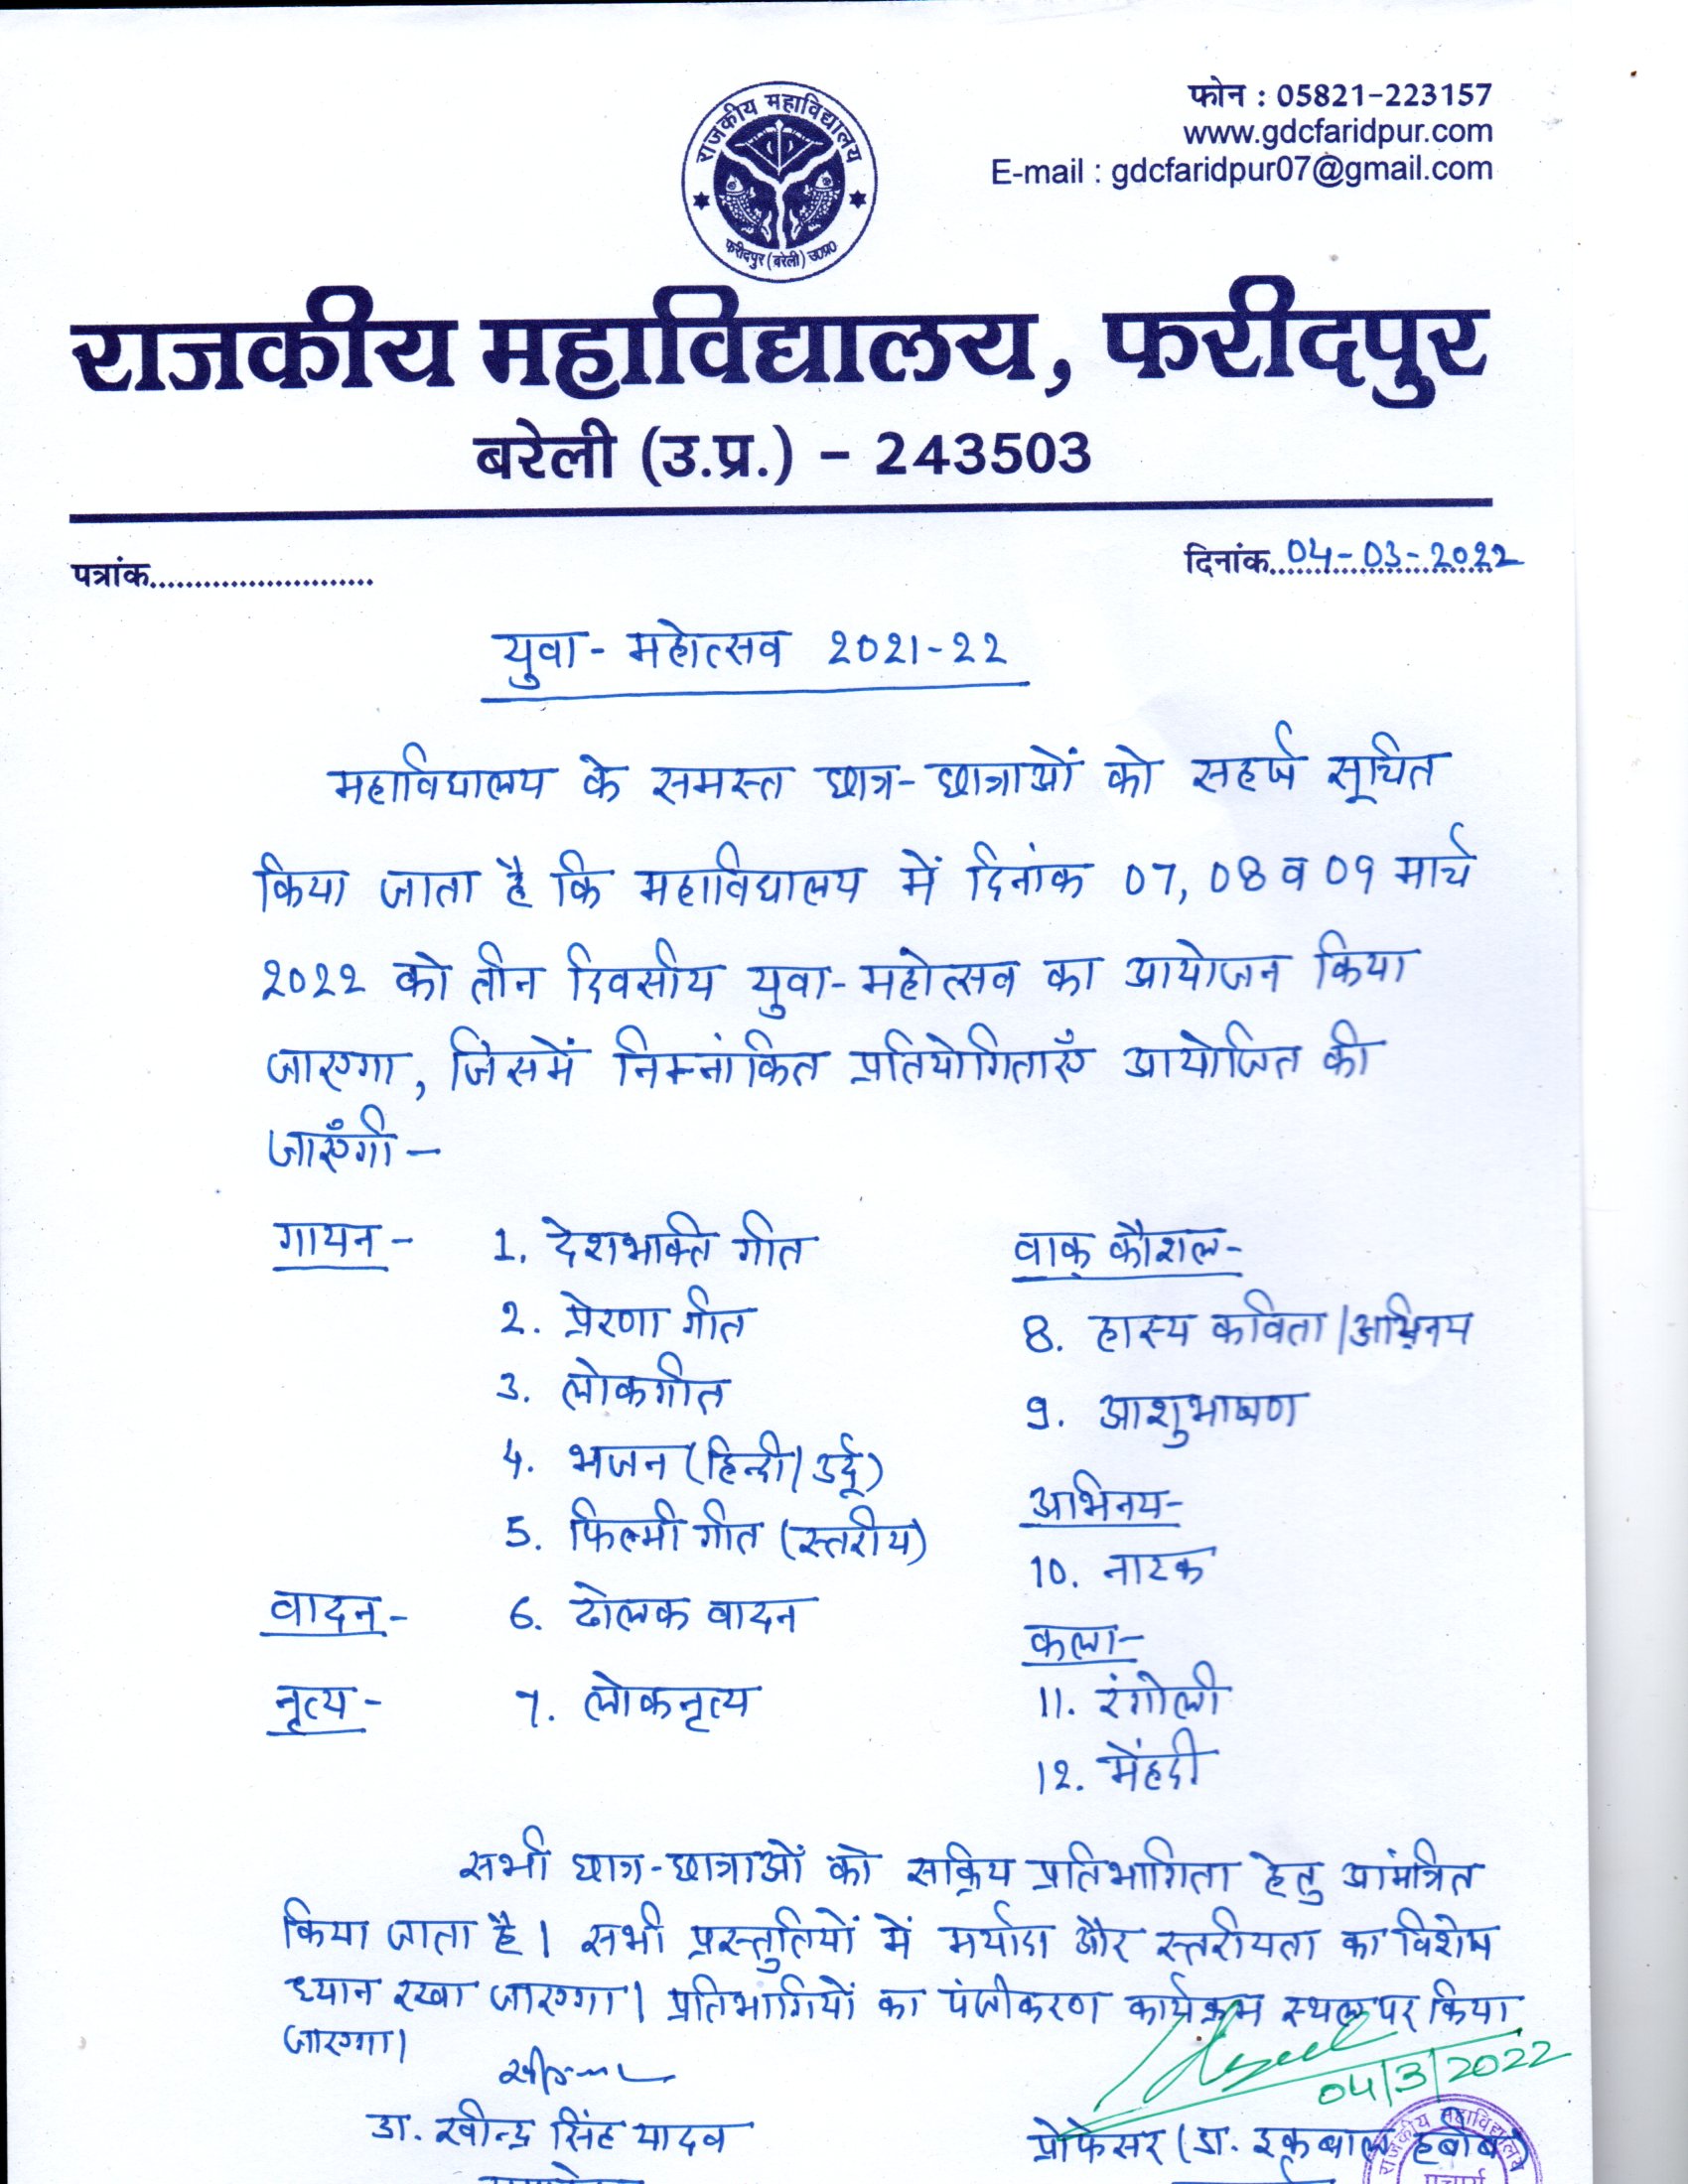 फोन : 05821-223157
www.gdcfaridpur.com
E-mail : gdcfaridpur07@gmail.com
राजकीय महाविद्यालय
फरीदपुर (बरेली) उ०प्र०
राजकीय महाविद्यालय, फरीदपुर
बरेली (उ.प्र.) - 243503
पत्रांक........................
दिनांक 04-03-2022
युवा-महोत्सव 2021-22
महाविद्यालय के समस्त छात्र-छात्राओं को सहर्ष सूचित
किया जाता है कि महाविद्यालय में दिनांक 07, 08 व 09 मार्च
2022 को तीन दिवसीय युवा-महोत्सव का आयोजन किया
जाएगा, जिसमें निम्नांकित प्रतियोगिताएँ आयोजित की
जाएँगी-
गायन- 1. देशभक्ति गीत
2. प्रेरणा गीत
3. लोकगीत
4. भजन (हिन्दी/उर्दू)
5. फिल्मी गीत (स्तरीय)
वादन- 6. ढोलक वादन
नृत्य- 7. लोकनृत्य
वाक् कौशल-
8. हास्य कविता/अभिनय
9. आशुभाषण
अभिनय-
10. नाटक
कला-
11. रंगोली
12. मेंहदी
सभी छात्र-छात्राओं को सक्रिय प्रतिभागिता हेतु आमंत्रित
किया जाता है। सभी प्रस्तुतियों में मर्यादा और स्तरीयता का विशेष
ध्यान रखा जाएगा। प्रतिभागियों का पंजीकरण कार्यक्रम स्थल पर किया
जाएगा।
04/3/2022
डा. रवीन्द्र सिंह यादव
प्रोफेसर (डा. इकबाल हबीब)
राजकीय महाविद्यालय